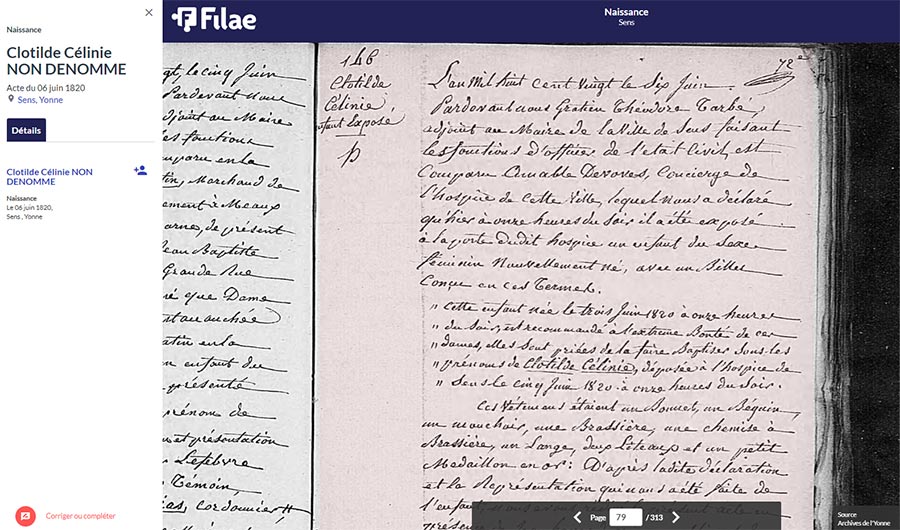 Naissance
Clotilde Célinie
NON DENOMME
Acte du 06 juin 1820
Sens, Yonne
Détails
Clotilde Célinie NON
DENOMME
Naissance
Le 06 juin 1820,
Sens, Yonne
Corriger ou compléter
Filae
Naissance
Sens
gt, le cinq Juin
Pardevant nous
adjoint au Maire
les fonctions
omparu en la
tin, Marchand de
ement à Meaux
arne, de présent
Jean Baptiste
Grande Rue
ré que Dame
est accouchée
en la
un enfant du
présenté
prénom de
et présentation
Lefebvre
Témoin,
cordonnier
146
Clotilde
Célinie
enfant Exposé
72e
L'an Mil huit Cent Vingt le Six Juin
Pardevant nous Gratien Théodore Tarbé,
adjoint au Maire de la Ville de Sens faisant
les fonctions d'officier de l'état Civil, est
Comparu Amable Devoves, Concierge de
l'hospice de Cette Ville, lequel nous a déclaré
qu'hier à onze heures du Soir il a été exposé
à la porte dudit hospice un enfant du Sexe
féminin Nouvellement né, avec un Billet
Conçu en ces Termes.
" Cette enfant née le trois Juin 1820 à onze heures
" du Soir, est recommandé à l'extrême Bonté de ces
" dames, elles sont priées de la faire Baptiser Sous les
" prénoms de Clotilde Célinie, déposée à l'hospice de
" Sens le cinq Juin 1820 à onze heures du Soir.
Ces Vétemens étaient un Bonnet, un Béguin,
un mouchoir, une Brassière, une chemise à
Brassière, un Lange, deux Liteaux et un petit
Médaillon en or: D'après ladite déclaration
et la Représentation qui nous a été faite de
l'enfant
Page 79 / 313
Source
Archives de l'Yonne